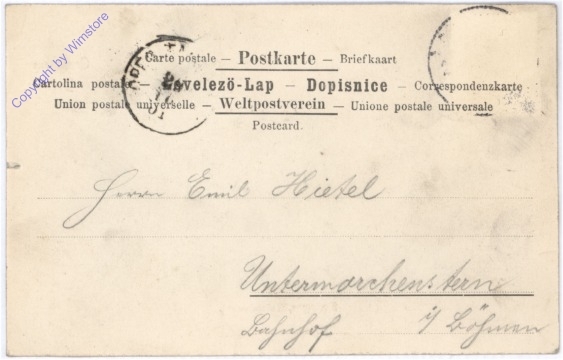 Copyright by Wimstore
Carte postale – Postkarte – Briefkaart
Cartolina postale – Levelező-Lap – Dopisnice – Correspondenzkarte
Union postale universelle – Weltpostverein – Unione postale universale
Postcard.
Herrn Emil Hietel
Untermorchenstern
Bahnhof i/ Böhmen